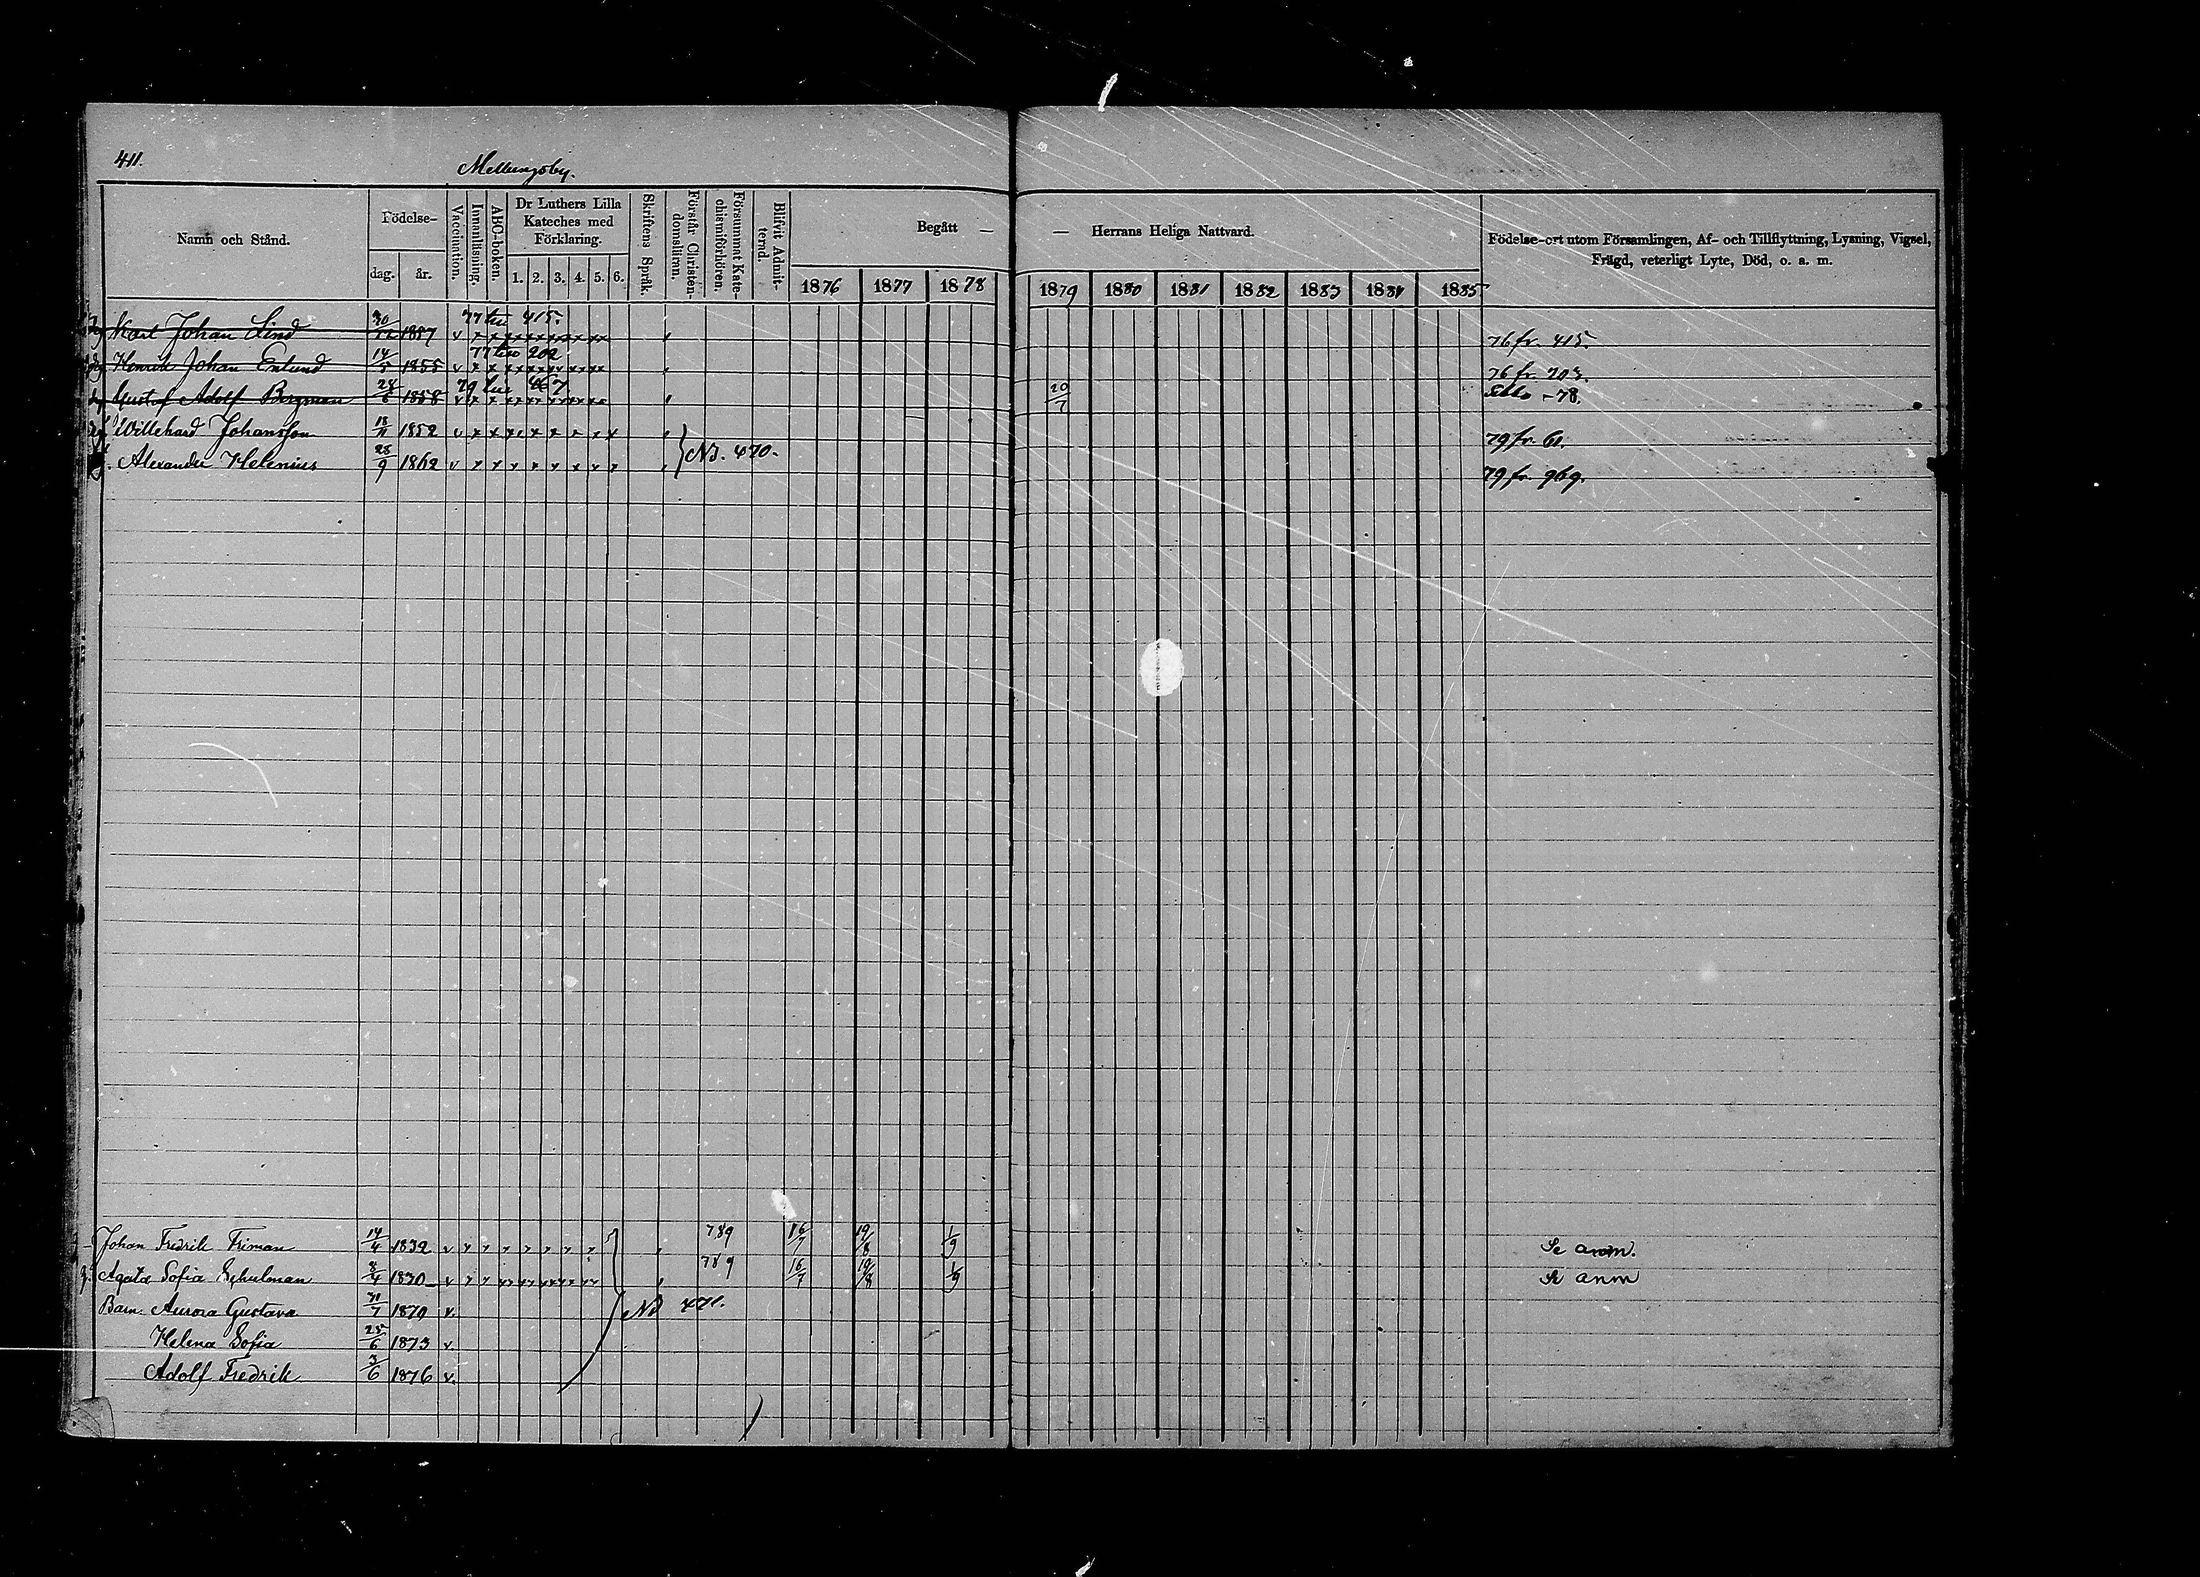 411.
Mellungsby.
Namn och Stånd.
Födelse-
dag. år.
Vaccination.
Innanläsning.
ABC-boken.
Dr Luthers Lilla Kateches med Förklaring.
1. 2. 3. 4. 5. 6.
Skriftens Språk.
Förstår Christendomsläran.
Försummat Katechismiförhören.
Blifvit Admitterad.
Begått — — Herrans Heliga Nattvard.
1876 1877 1878 1879 1880 1881 1882 1883 1884 1885
Födelse-ort utom Församlingen, Af- och Tillflyttning, Lysning, Vigsel,
Frägd, veterligt Lyte, Död, o. a. m.
77 till 415.
Karl Johan Lind 30/12 1857 v x x x x x x x x 76 fr. 415.
77 till 202
Henrik Johan Enlund 14/5 1855 v x x x x x x x x 76 fr. 203.
79 till 467
Gustaf Adolf Bergman 28/6 1858 v x x x x x x x x 20/7 -78.
Willehard Johansson 18/11 1852 v x x x x x x x x 79 fr. 61.
Alexander Helenius 28/9 1862 v x x x x x x x x NB. 470. 79 fr. 969.
Johan Fredrik Friman 14/4 1832 v 789 16/7 19/8 1/9 Se anm.
Agata Sofia Schulman 8/4 1830 v 789 16/7 19/8 1/9 Se anm
Barn. Aurora Gustava 31/7 1870 v. NB 471.
Helena Sofia 25/6 1873 v.
Adolf Fredrik 3/6 1876 v.